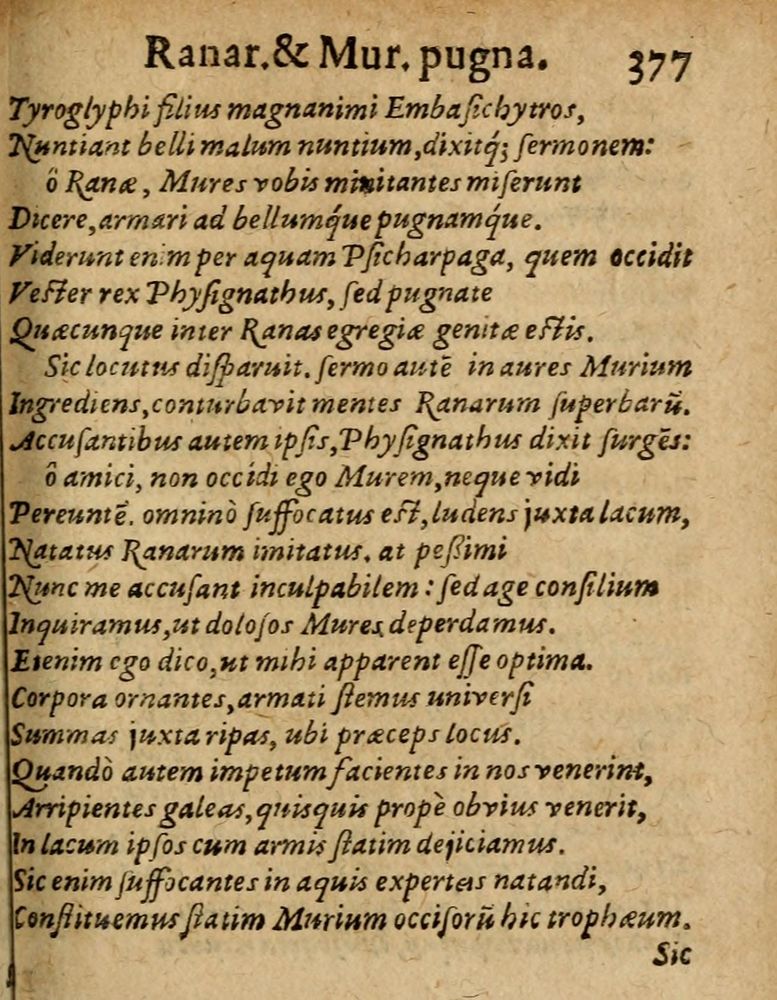 Ranar. & Mur. pugna. 377
Tyroglyphi filius magnanimi Embaſichytros,
Nuntiant belli malum nuntium, dixitq́; ſermonem:
ô Ranæ, Mures vobis minitantes miſerunt
Dicere, armari ad bellumq́ue pugnamq́ue.
Viderunt enim per aquam Pſicharpaga, quem occidit
Veſter rex Phyſignathus, ſed pugnate
Quæcunque inter Ranas egregiæ genitæ eſtis.
Sic locutus diſparuit. ſermo autē in aures Murium
Ingrediens, conturbavit mentes Ranarum ſuperbarū.
Accuſantibus autem ipſis, Phyſignathus dixit ſurgēs:
ô amici, non occidi ego Murem, neque vidi
Pereuntē. omninò ſuffocatus eſt, ludens juxta lacum,
Natatus Ranarum imitatus. at peßimi
Nunc me accuſant inculpabilem: ſed age conſilium
Inquiramus, ut doloſos Mures deperdamus.
Etenim ego dico, ut mihi apparent eſſe optima.
Corpora ornantes, armati ſtemus univerſi
Summas juxta ripas, ubi præceps locus.
Quandò autem impetum facientes in nos venerint,
Arripientes galeas, quisquis propè obvius venerit,
In lacum ipſos cum armis ſtatim dejiciamus.
Sic enim ſuffocantes in aquis expertes natandi,
Conſtituemus ſtatim Murium occiſorū hic trophæum.
Sic